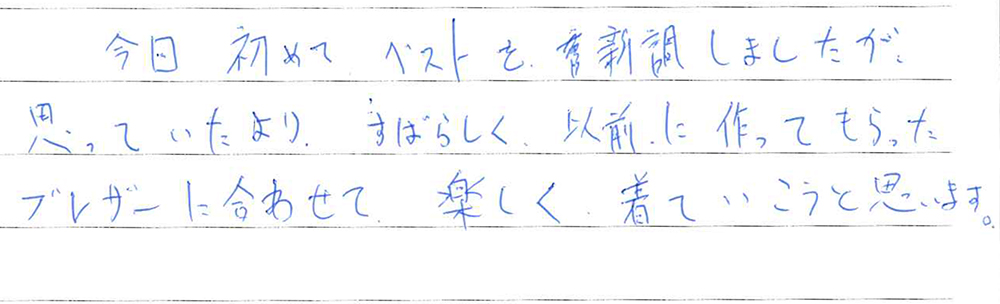 今回 初めて ベストを 新調しましたが、
思っていたより すばらしく、以前に作ってもらった
ブレザーに合わせて 楽しく 着ていこうと思います。